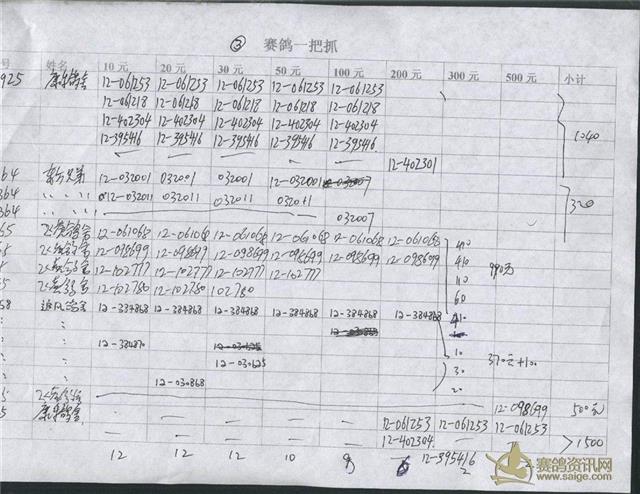 ③ 赛鸽一把抓
号 姓名 10 元 20 元 30 元 50 元 100 元 200 元 300 元 500 元 小计
925 12-061253 12-061253 12-061253 12-061253 12-061253
12-061218 12-061218 12-061218 12-061218 12-061218
12-402304 12-402304 12-402304 12-402304 12-402304
12-395416 12-395416 12-395416 12-395416 12-395416 1040
12-402301
364 兄弟 12-032001 032001 032001 12-032001
364 12-032011 032011 032011 032011 320
364 032007
65 12-061068 12-061068 12-061068 12-061068 12-061068 12-061068 410
5 12-098699 12-098699 12-098699 12-098699 12-098699 12-098699 410 990元
5 12-102777 12-102777 12-102777 12-102777 110
5 12-102780 12-102780 102780 60
58 12-384868 12-384868 12-384868 12-384868 12-384868 12-384868 410
12-384870 10 370元+100
12-030625 30
12-030868 20
5 12-098699 500元
5 12-061253 12-061253 12-061253
12-402304 1500
12 12 12 10 9 6 12-395416 2 2
赛鸽资讯网
www.saige.com